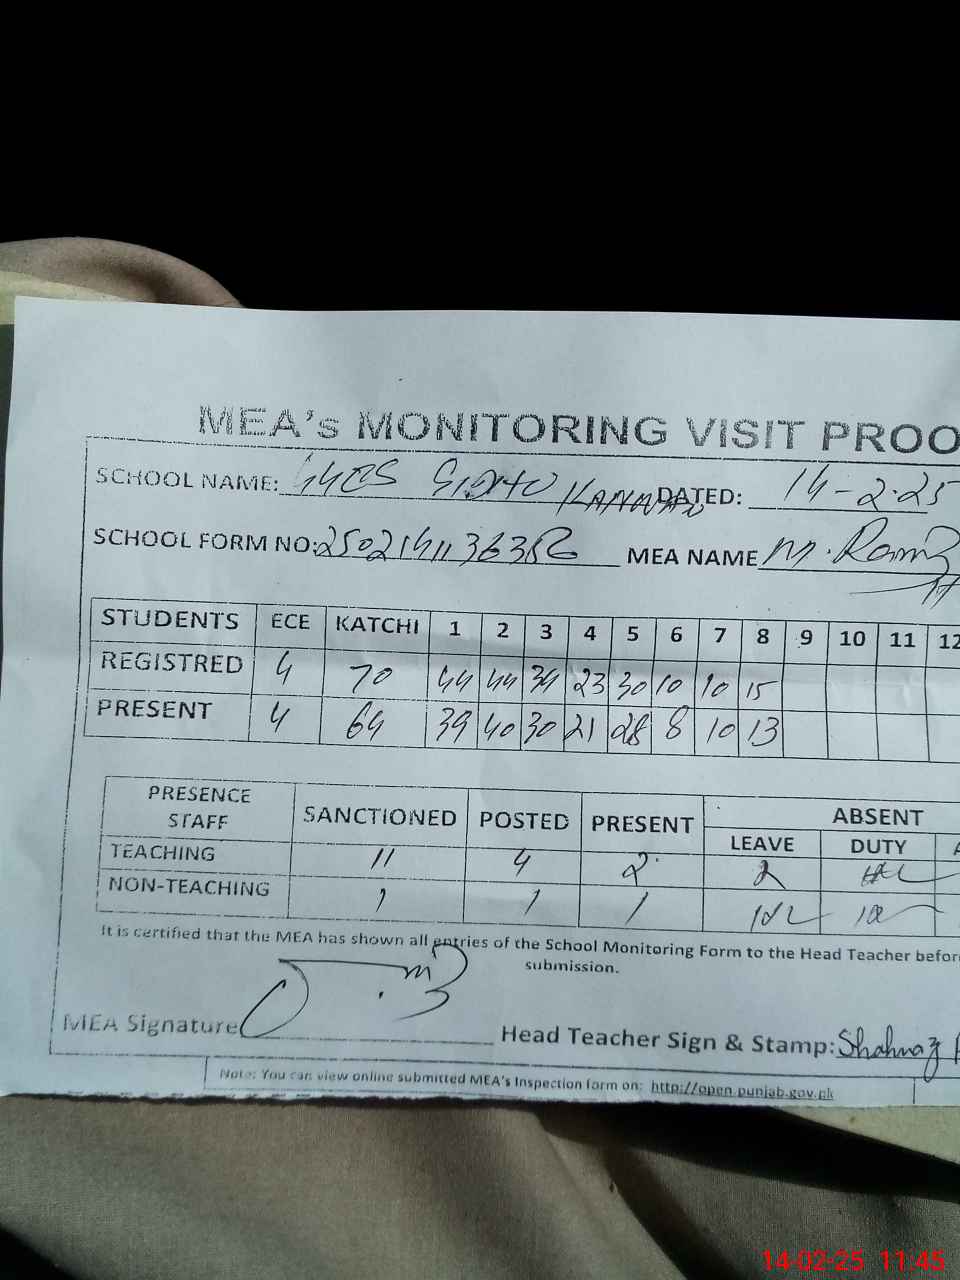 MEA's MONITORING VISIT PROO
SCHOOL NAME: DATED: 14-2-25
SCHOOL FORM NO: MEA NAME M. Ramz
STUDENTS ECE KATCHI 1 2 3 4 5 6 7 8 9 10 11 12
REGISTRED 4 70 44 44 34 23 30 10 10 15
PRESENT 4 64 39 40 30 21 28 8 10 13
PRESENCE STAFF SANCTIONED POSTED PRESENT ABSENT
LEAVE DUTY A
TEACHING 11 4 2 2
NON-TEACHING 1 1 1
It is certified that the MEA has shown all entries of the School Monitoring Form to the Head Teacher befor
submission.
MEA Signature
Head Teacher Sign & Stamp: Shahnaz
Note: You can view online submitted MEA's Inspection form on: http://open.punjab.gov.pk
14-02-25 11:45